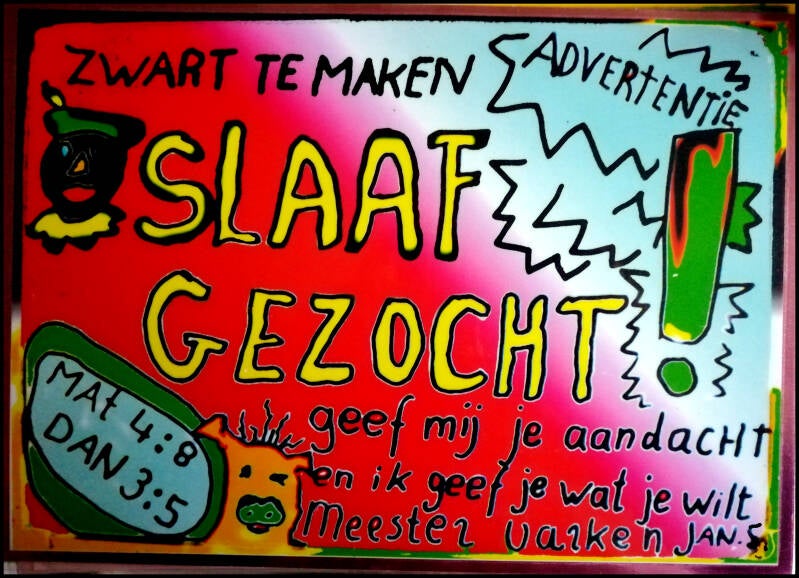 ZWART TE MAKEN
ADVERTENTIE
SLAAF
GEZOCHT!
MAT 4:8
DAN 3:5
geef mij je aandACHT
en ik geef je wat je wilt
Meester varken JAN.S